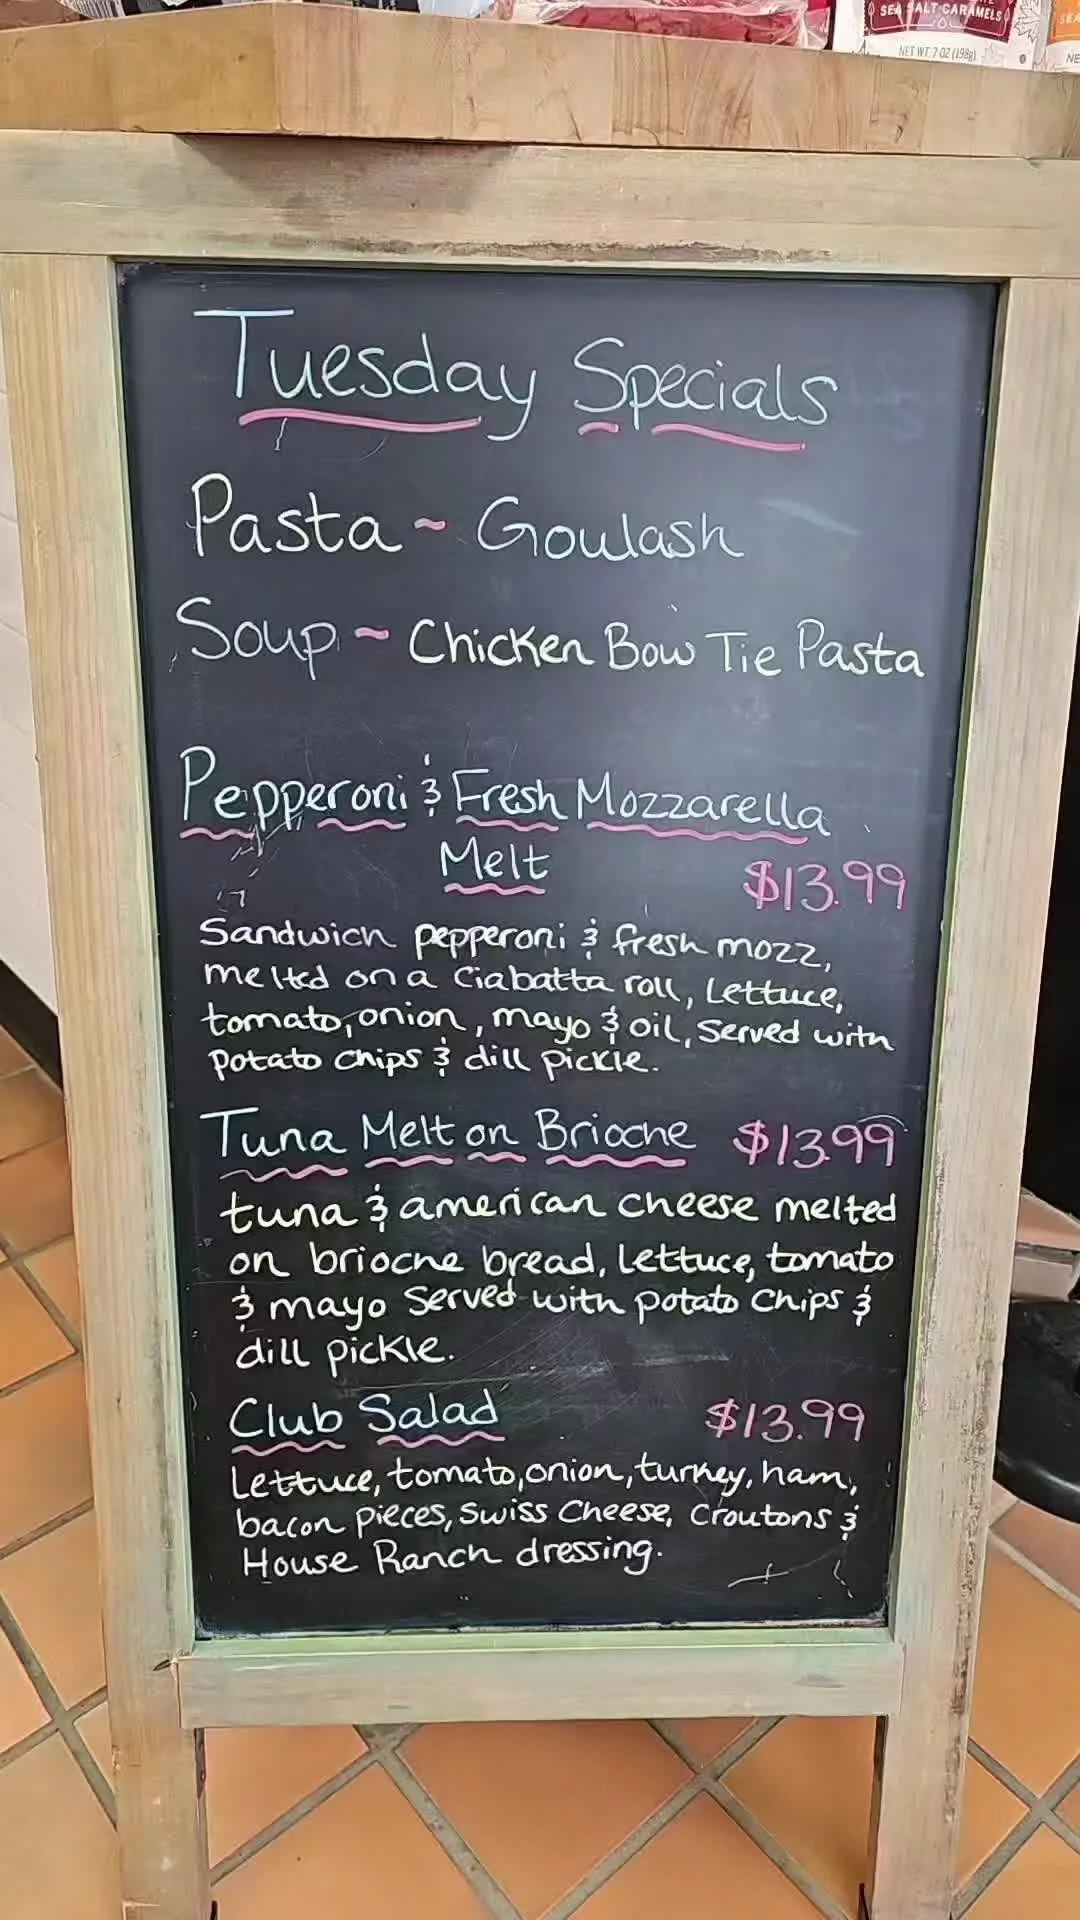 SEA SALT CARAMELS
NET WT. 7 OZ (198g)
Tuesday Specials
Pasta ~ Goulash
Soup ~ Chicken Bow Tie Pasta
Pepperoni & Fresh Mozzarella
Melt $13.99
Sandwich pepperoni & fresh mozz,
melted on a Ciabatta roll, Lettuce,
tomato, onion, mayo & oil, Served with
Potato Chips & dill pickle.
Tuna Melt on Brioche $13.99
tuna & american cheese melted
on brioche bread, Lettuce, tomato
& mayo Served with potato Chips &
dill pickle.
Club Salad $13.99
Lettuce, tomato, onion, turkey, ham,
bacon pieces, Swiss Cheese, Croutons &
House Ranch dressing.